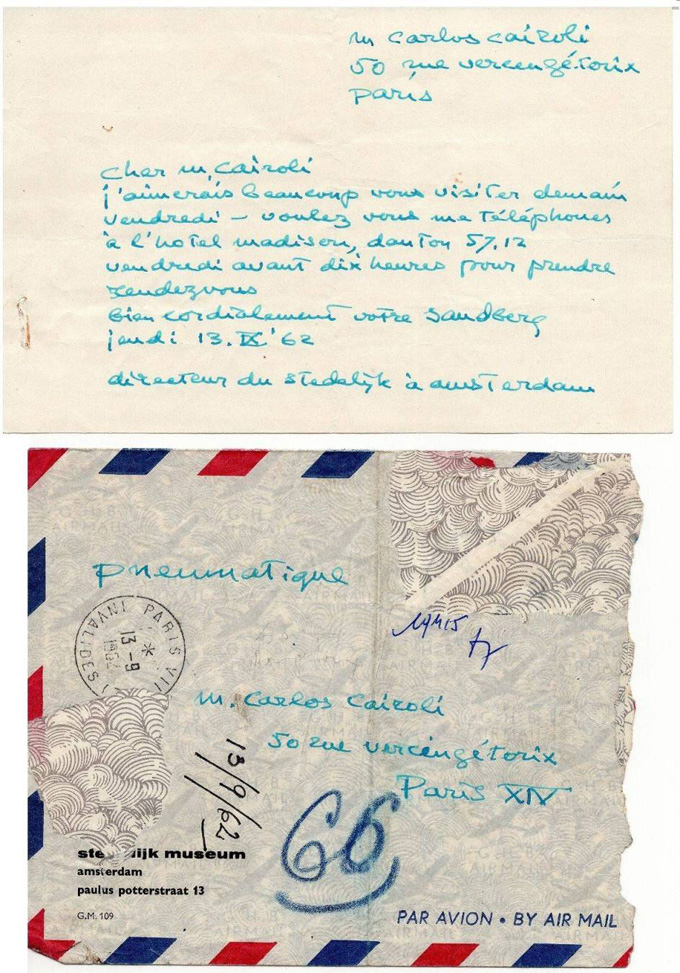 m carlos cairoli
50 rue vercengétorix
paris
cher m. cairoli
j'aimerais beaucoup vous visiter demain
vendredi – voulez vous me téléphoner
à l'hotel madison, danton 57.12
vendredi avant dix heures pour prendre
rendezvous
bien cordialement votre sandberg
jeudi 13.IX '62
directeur du stedelijk à amsterdam
pneumatique
PARIS VII
INVALIDES
*
13-9
1962
19H15
m. carlos cairoli
50 rue vercengétorix
Paris XIV
13/9/62
66
museum
amsterdam
paulus potterstraat 13
G.M. 109
PAR AVION • BY AIR MAIL